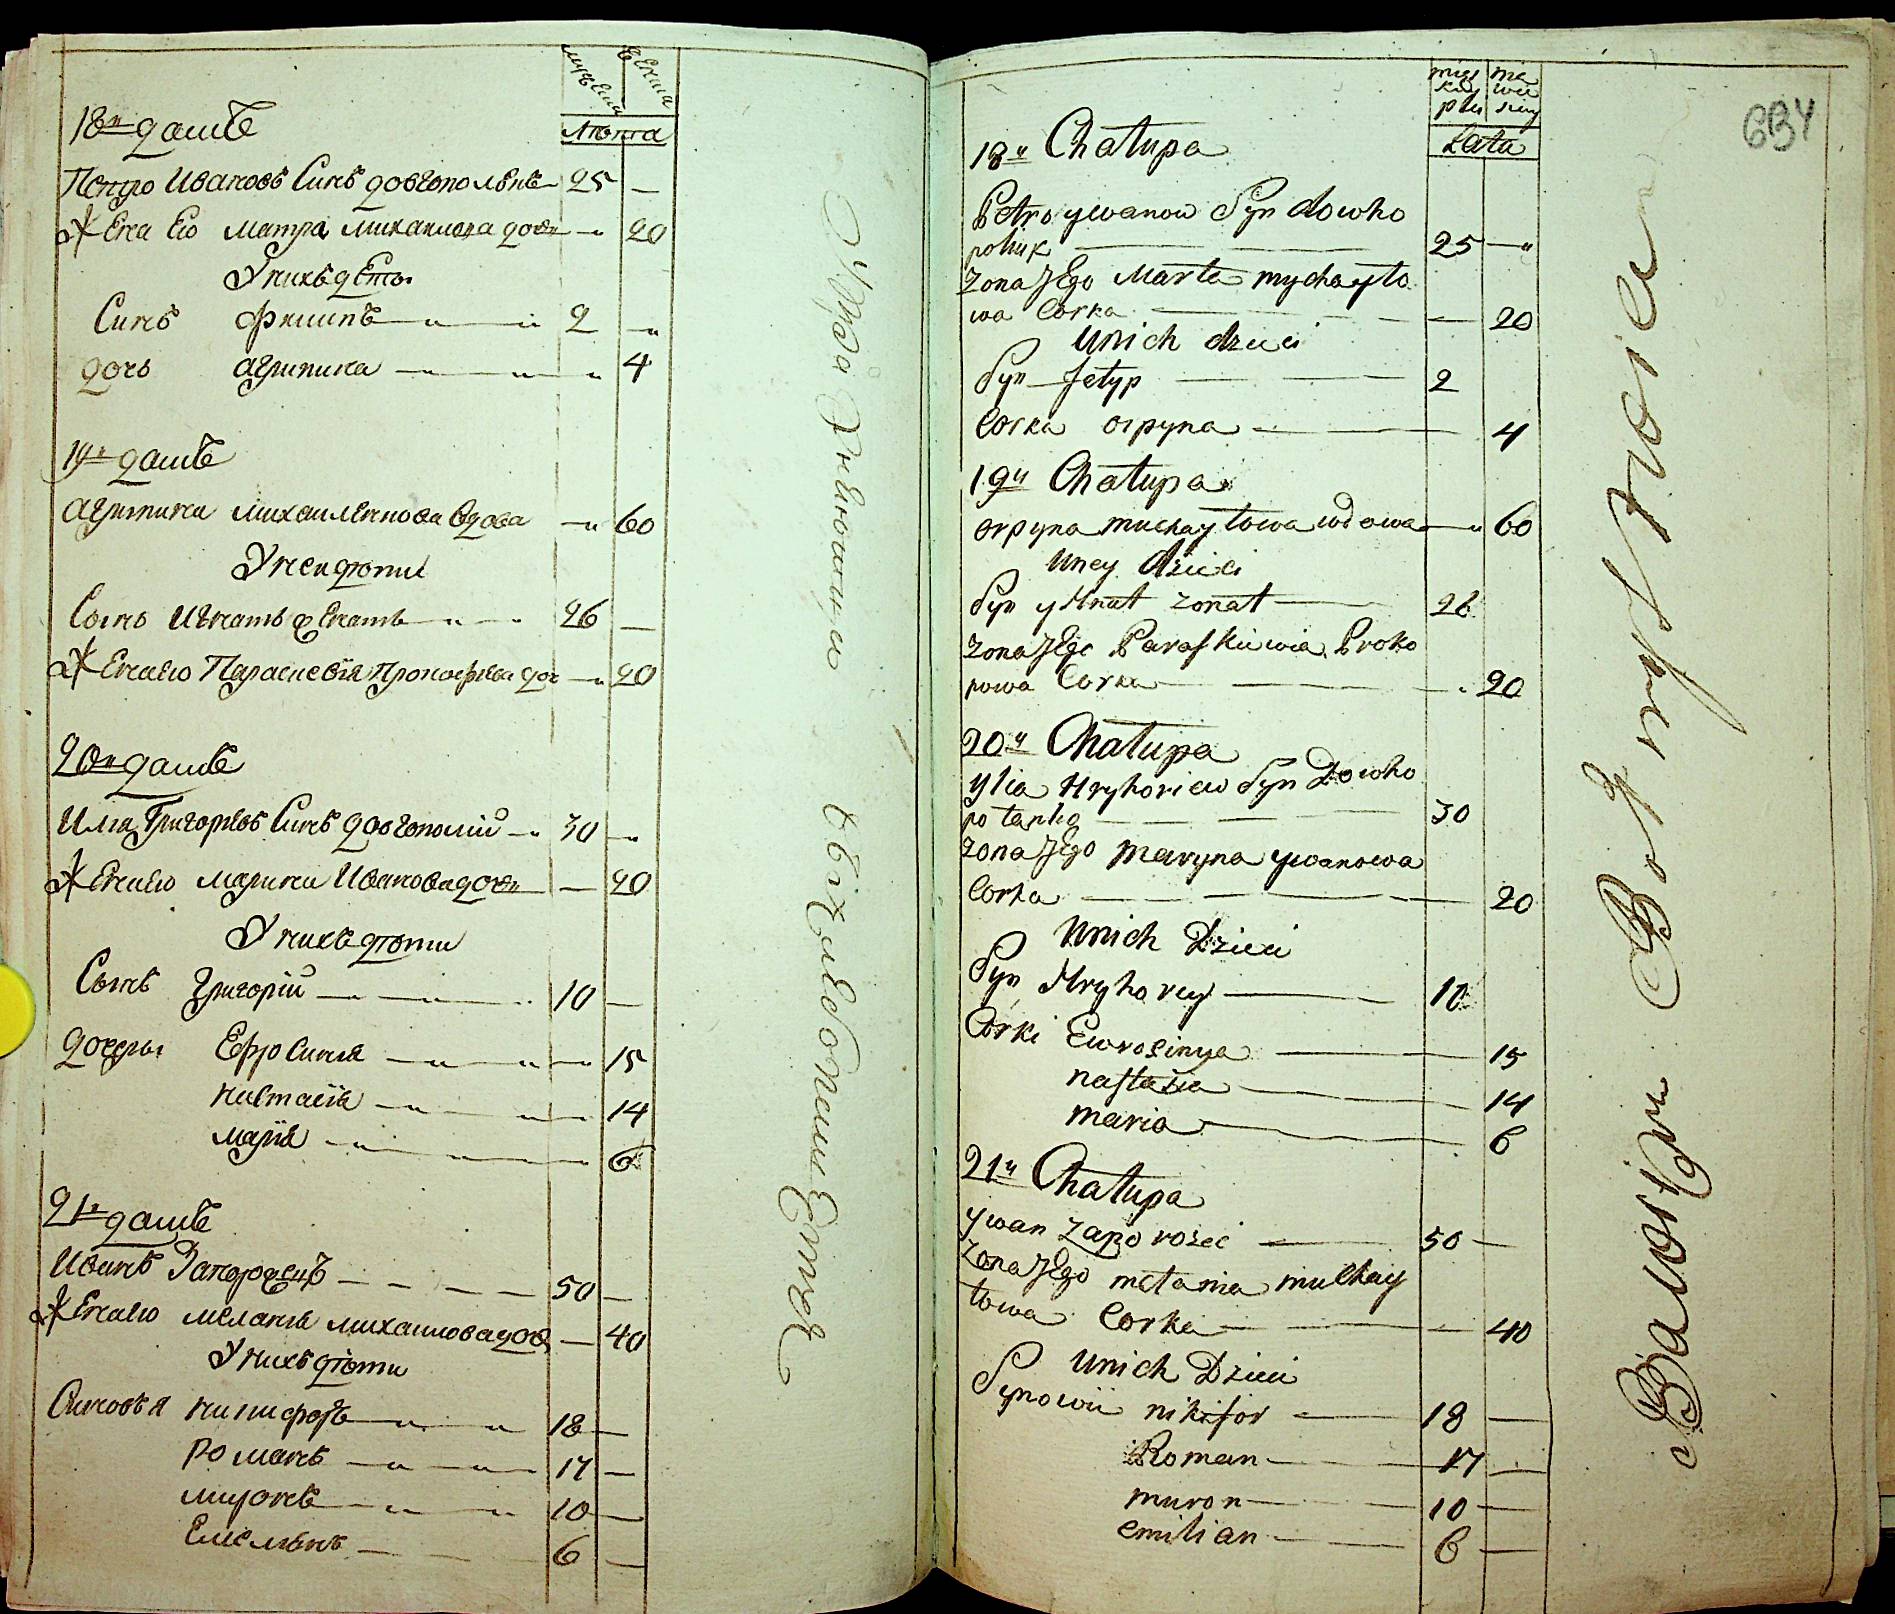 Лѣта
18ᵃ хата
Петро Ивановъ Синъ довгополикъ 25 —
Жена Ею Матра Михаилова дочь — 20
У нихъ дѣты
Синъ Филипъ 2 —
дочь Агрипина — 4
19ᵃ хата
Агрипина Михаиленкова вдова — 60
У неи дѣти
Сынъ Игнатъ женатъ 26 —
Жена Ею Параскевія Прокофіева доч — 20
20ᵃ хата
Илія Григоріевъ Синъ довгополій 30 —
Жена Ею Марина Иванова дочь — 20
У нихъ дѣти
Сынъ Григорій 10 —
дочеры Ефросинія — 15
Настасія — 14
Марія — 6
21ᵃ хата
Иванъ Запорожецъ 50 —
Жена Ею Меланія Михаилова доч — 40
У нихъ дѣти
Синовѣя Никифоръ 18 —
Романъ 17 —
Миронъ 10 —
Емельянъ 6 —
męz kiey płu
Lata
18ᵃ Chałupa
Petro ywanow Syn dowho
poluk 25 —
zona Jego Marta mychayło
wa Corka — 20
Unich dzieci
Syn fetyp 2
Corka orpyna — 4
19ᵃ Chałupa
orpyna muchayłowa wdowa — 60
Uney dzieci
Syn yHnat zonat 26
zona Jego Paraskiewia Proko
powa Corka — 20
20ᵃ Chałupa
Ylia Hryhoriew Syn Dowho
30
zona Jego Maryna ywanowa
Corka — 20
Unich Dzieci
Syn Hryhorey 10
Corki Ewrosinya — 15
nastazia — 14
maria — 6
21ᵃ Chałupa
ywan zaporożec 50 —
zona Jego mełania muchay
łowa Corka — 40
Unich Dzieci
Synowii nikifor 18 —
Roman 17 —
muron 10 —
emilian 6 —